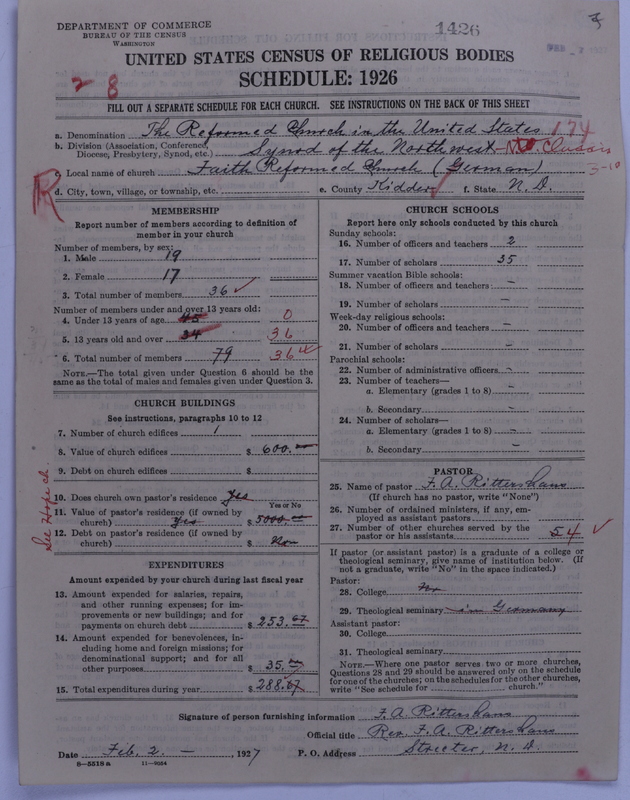 DEPARTMENT OF COMMERCE
BUREAU OF THE CENSUS
WASHINGTON
1426
UNITED STATES CENSUS OF RELIGIOUS BODIES
SCHEDULE: 1926
2 8
FILL OUT A SEPARATE SCHEDULE FOR EACH CHURCH. SEE INSTRUCTIONS ON THE BACK OF THIS SHEET
a. Denomination The Reformed Church in the United States 174
b. Division (Association, Conference, Diocese, Presbytery, Synod, etc.) Synod of the Northwest Classis
3-10
c. Local name of church Faith Reformed Church (German)
R
d. City, town, village, or township, etc.
e. County Kidder f. State N. D.
MEMBERSHIP
Report number of members according to definition of
member in your church
Number of members, by sex:
1. Male 19
2. Female 17
3. Total number of members 36
Number of members under and over 13 years old:
4. Under 13 years of age 45 0
5. 13 years old and over 34 36
6. Total number of members 79 36
NOTE.—The total given under Question 6 should be
same as the total of males and females given under Question 3.
CHURCH BUILDINGS
See instructions, paragraphs 10 to 12
7. Number of church edifices 1
8. Value of church edifices $ 600.
9. Debt on church edifices $
10. Does church own pastor's residence Yes
Yes or No
11. Value of pastor's residence (if owned by
church) Yes $ 5000.
12. Debt on pastor's residence (if owned by
church) $ Non
See Hope ch.
EXPENDITURES
Amount expended by your church during last fiscal year
13. Amount expended for salaries, repairs,
and other running expenses; for im-
provements or new buildings; and for
payments on church debt $ 253.67
14. Amount expended for benevolences, in-
cluding home and foreign missions; for
denominational support; and for all
other purposes $ 35.
15. Total expenditures during year $ 288.67
CHURCH SCHOOLS
Report here only schools conducted by this church
Sunday schools:
16. Number of officers and teachers 2
17. Number of scholars 35
Summer vacation Bible schools:
18. Number of officers and teachers —
19. Number of scholars —
Week-day religious schools:
20. Number of officers and teachers —
21. Number of scholars —
Parochial schools:
22. Number of administrative officers —
23. Number of teachers—
a. Elementary (grades 1 to 8) —
b. Secondary —
24. Number of scholars—
a. Elementary (grades 1 to 8) —
b. Secondary —
PASTOR
25. Name of pastor F. A. Rittershaus
(If church has no pastor, write "None")
26. Number of ordained ministers, if any, em-
ployed as assistant pastors
27. Number of other churches served by the
pastor or his assistants 4
If pastor (or assistant pastor) is a graduate of a college or
theological seminary, give name of institution below. (If
not a graduate, write "No" in the space indicated.)
Pastor:
28. College
29. Theological seminary in Germany
Assistant pastor:
30. College
31. Theological seminary
NOTE.—Where one pastor serves two or more churches,
Questions 28 and 29 should be answered only on the schedule
for one of the churches; on the schedules for the other churches,
write "See schedule for church."
Signature of person furnishing information F. A. Rittershaus
Official title Rev. F. A. Rittershaus
Date Feb. 2 — , 1927 P. O. Address Streeter, N. D.
8—5518 a 11—9554